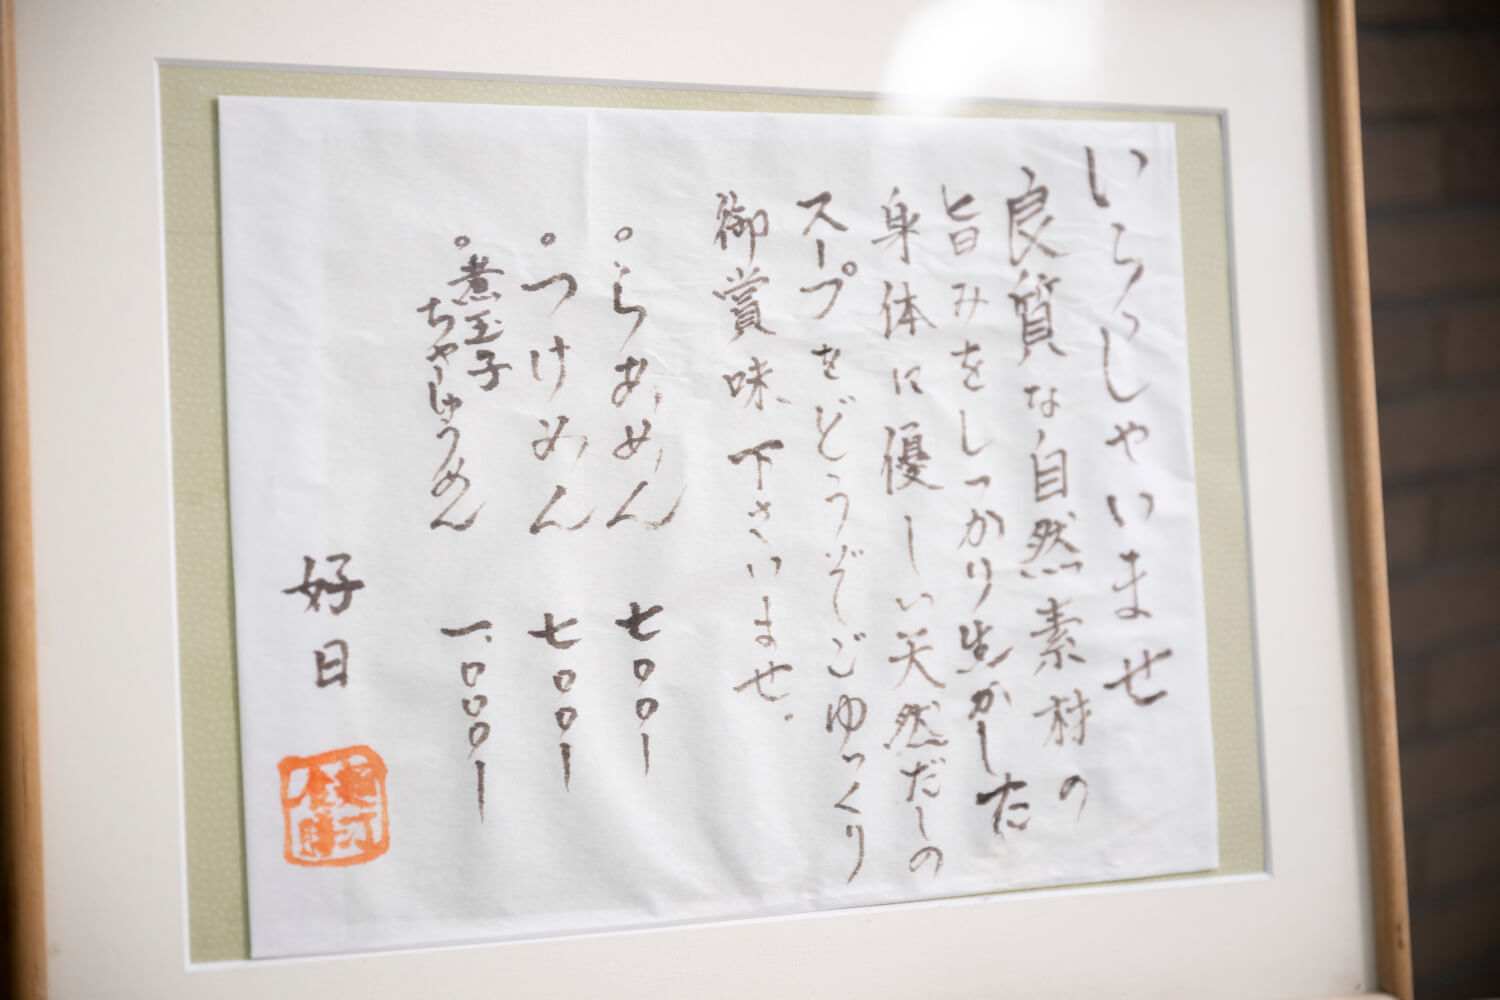 いらっしゃいませ
良質な自然素材の
旨みをしっかり生かした
身体に優しい天然だしの
スープをどうぞごゆっくり
御賞味下さいませ.
°らあめん 七〇〇ー
°つけめん 七〇〇ー
°煮玉子
ちゃーしゅうめん 一、〇〇〇ー
好日